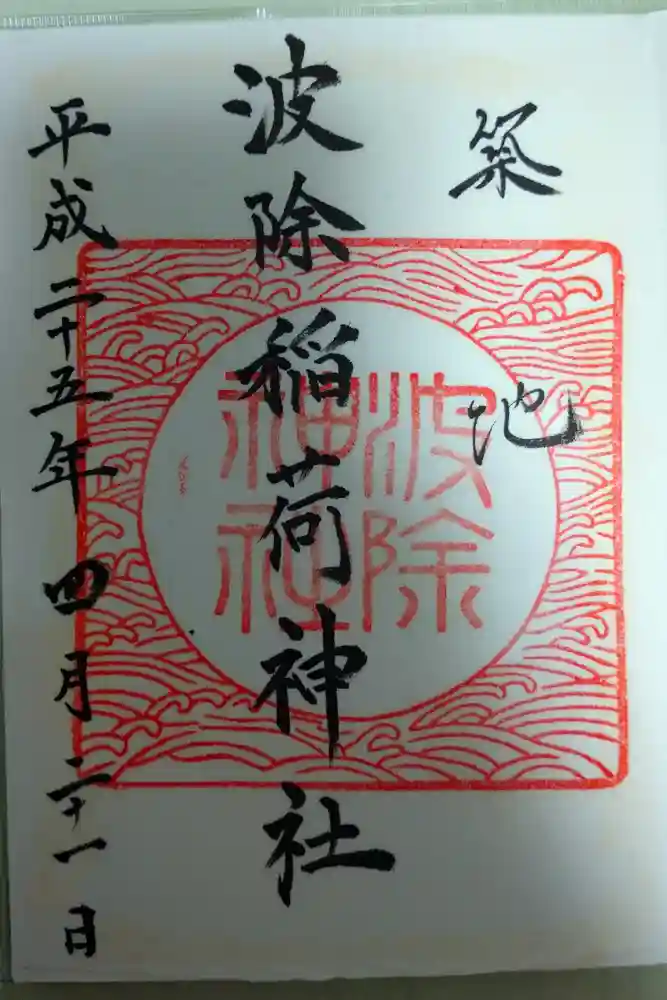 築地
波除稲荷神社
波除
神社
平成二十五年四月二十一日